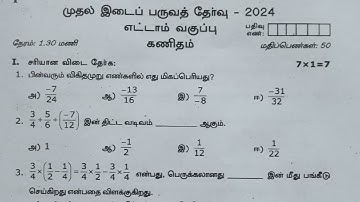 முதல் இடைப் பருவத் தேர்வு - 2024
எட்டாம் வகுப்பு
பதிவு எண்:
கணிதம்
நேரம்: 1.30 மணி
மதிப்பெண்கள்: 50
I. சரியான விடை தேர்க:
7×1=7
1. பின்வரும் விகிதமுறு எண்களில் எது மிகப்பெரியது?
அ) -17/24 ஆ) -13/16 இ) 7/-8 ஈ) -31/32
2. 3/4 + 5/6 + (-7/12) இன் திட்ட வடிவம் ______ ஆகும்.
அ) 1 ஆ) -1/2 இ) 1/12 ஈ) 1/22
3. 3/4 × (1/2 - 1/4) = 3/4 × 1/2 - 3/4 × 1/4 என்பது, பெருக்கலானது ______ இன் மீது பங்கீடு
செய்கிறது என்பதை விளக்குகிறது.